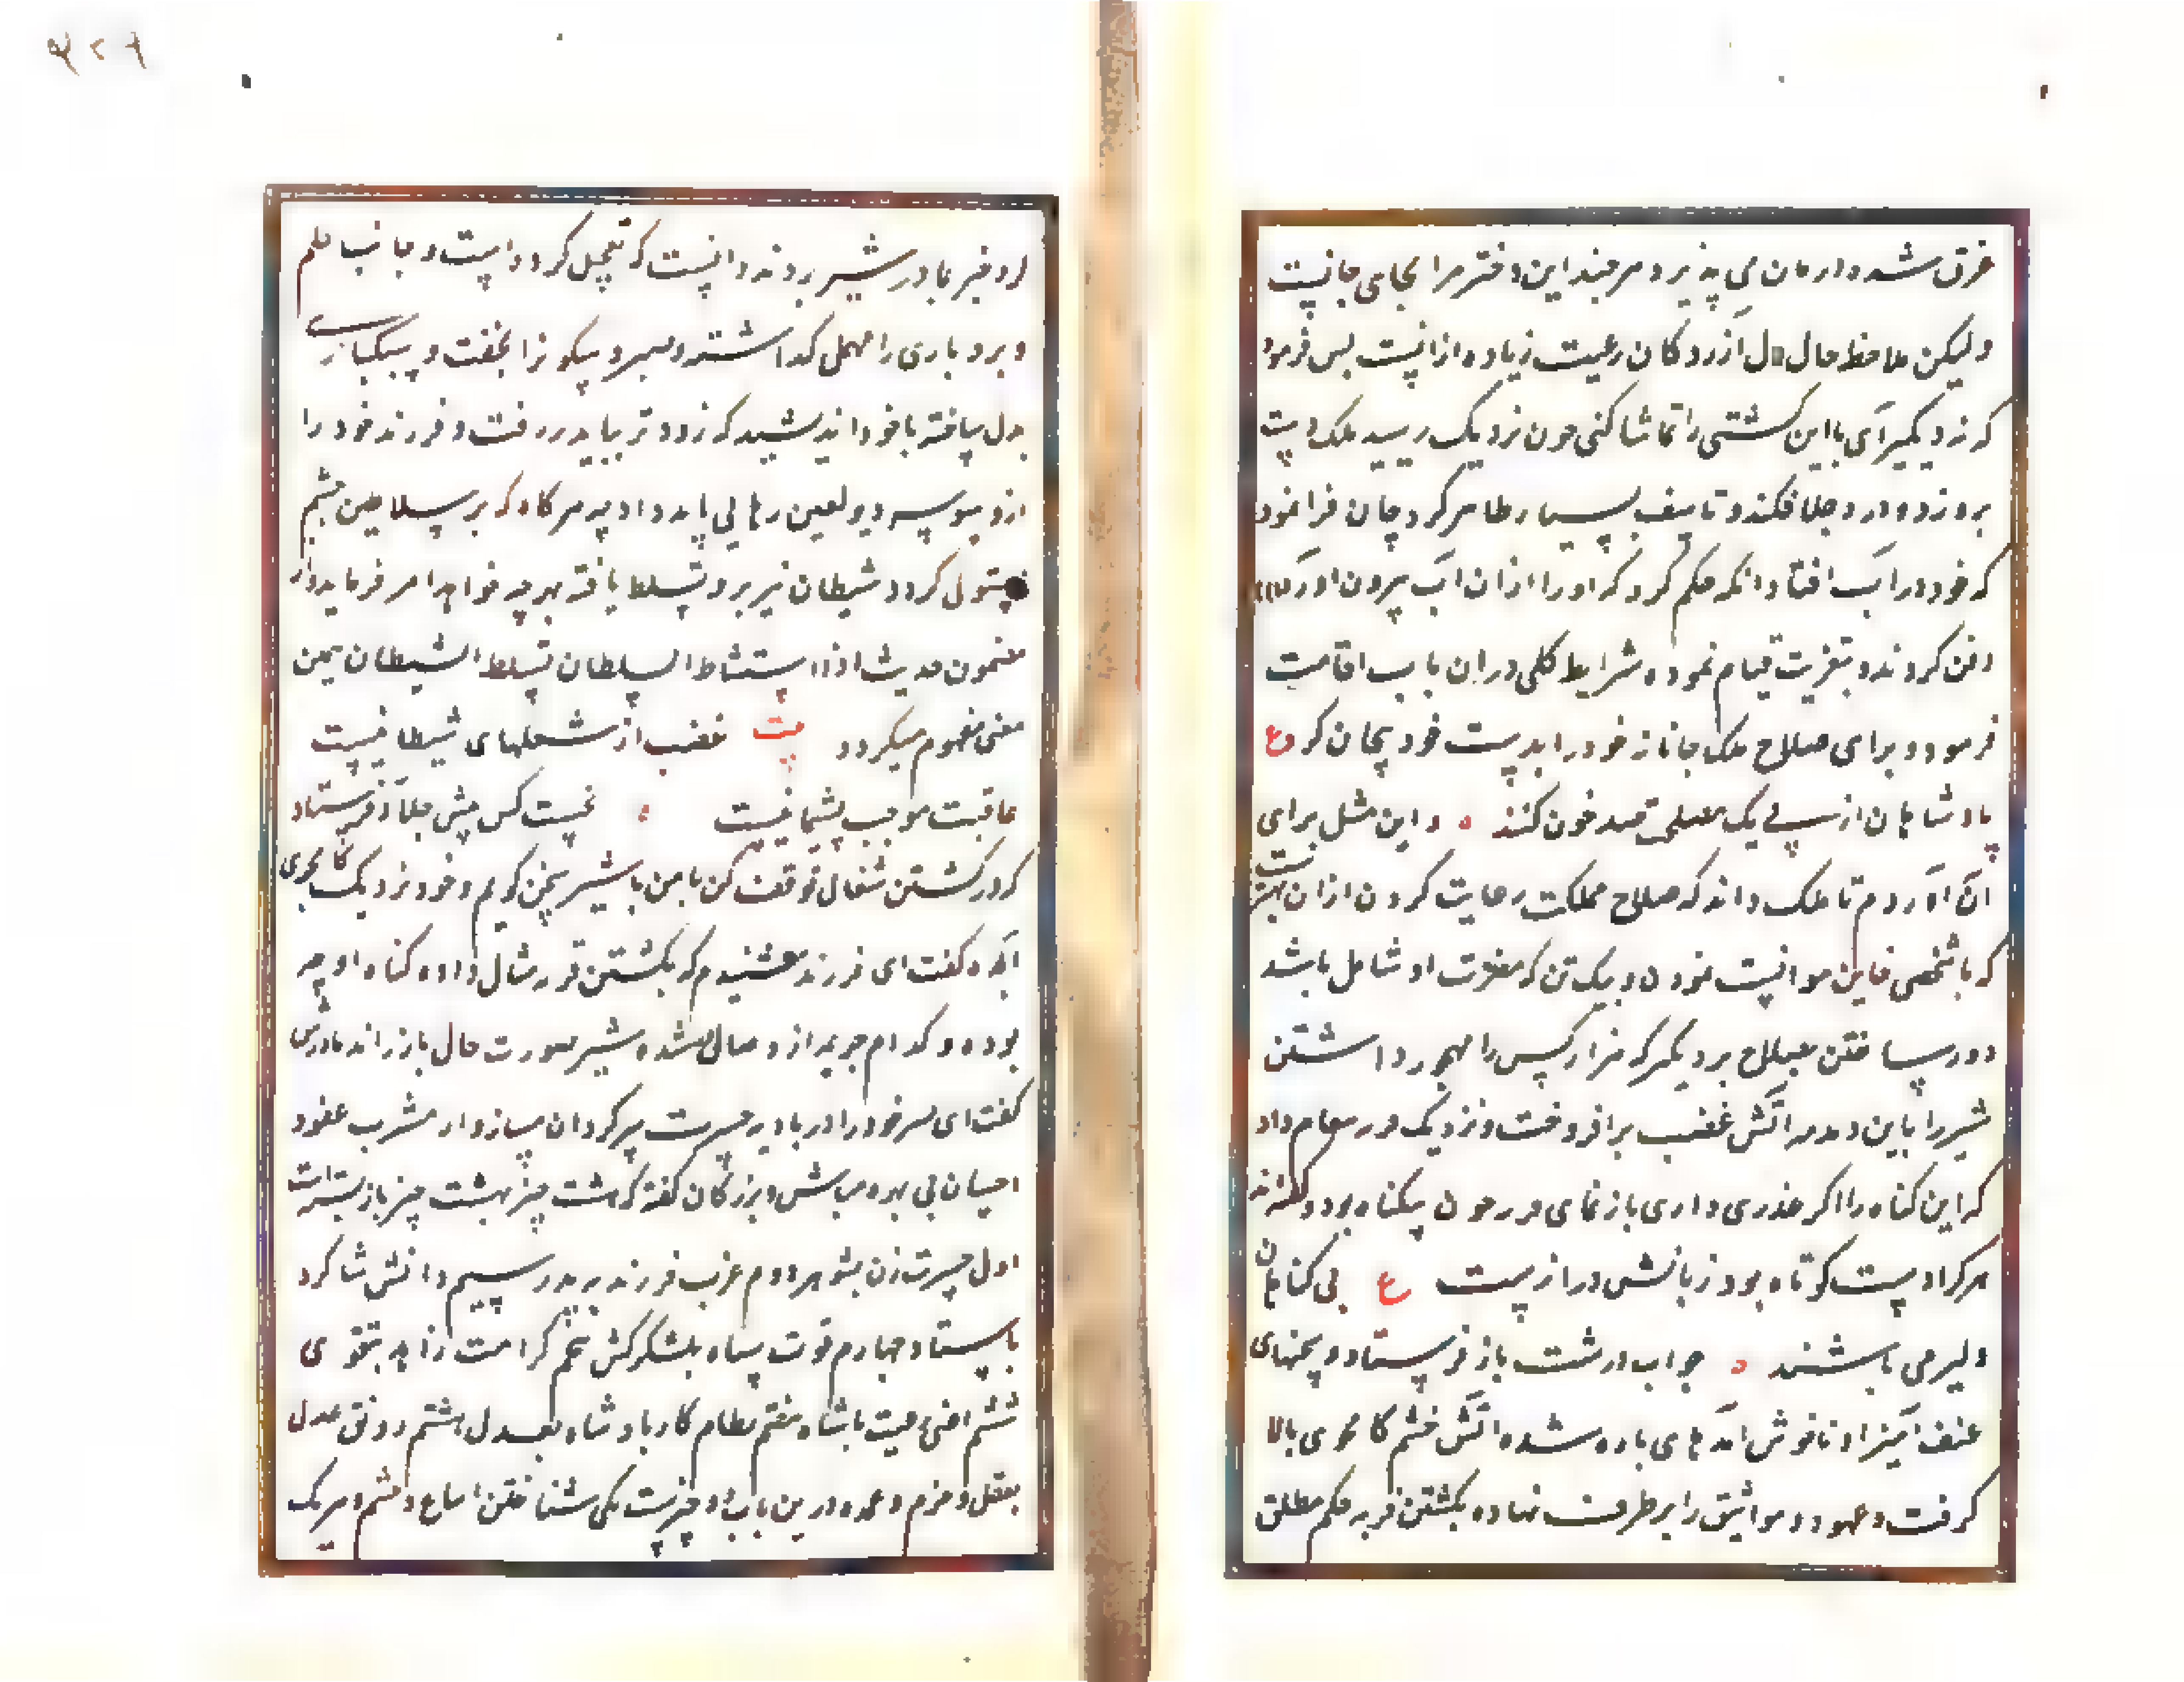 غرق شده درمان می پذیرد هرچند این دختر مرا بجای جانیست
ولیکن ملاحظه حال دل آزردکان رعیت زیاده ازانیست پس فرمود
که نزدیکتر آی تا این کشتی را تماشا کنی چون نزدیک رسید ملک دست
برو زد و در دجله افکند و تاسف بسیار ظاهر کرد چنان فرا نمود
که خود در آب افتاد آنکه حکم کرد که او را ازان آب بیرون آوردند
دفن کردند و بتعزیت قیام نموده شرایط کلی دران باب اقامت
فرمود و برای صلاح ملک جانانه خود را بدست خود بیجان کرد ع
پادشاهان از پی یک مصلحت صد خون کنند ه و این مثل برای
آن آوردم تا ملک داند که صلاح مملکت رعایت کردن ازان بهترست
که با شخصی خاین موانست نمودن و بیک تن که مضرت او شامل باشد
در ساختن صلاح بر دیگر که هزار کس را مهجور داشتن
شیر را باین دمدمه آتش غضب برافروخت و نزدیک فریسه پیغام داد
که این کناه را اکر عذری داری باز نمای فریسه چون بیکناه بود و گفته‌اند
هرکرا دست کوتاه بود زبانش درازست ع بی کناهان
دلیر می باشند ه جواب درشت باز فرستاد و سخنهای
عنف آمیز او ناخوش آمدهای باره شده آتش خشم کامجوی بالا
کرفت و عهود و مواثیق را بر طرف نهاده بکشتن فریسه حکم مطلق
۴۲۹
کرد و خبر بمادر شیر بردند دانست که تعجیل کرده است و جانب حلم
و بردباری را مهمل کذاشته و صبر و سکون را بخفت و سبکباری
بدل ساخته با خود اندیشید که زودتر بباید رفت و فرزند خود را
از وسوسه دیو لعین رهایی باید داد چه هرکاه که بر سلاطین خشم
مستولی کردد شیطان نیز برو تسلط یافته هرچه خواهد امر فرماید و از
مضمون حدیث اذا استشاط السلطان تسلط الشیطان همین
معنی مفهوم میکردد بیت غضب از شعلهای شیطانیست
عاقبت موجب پشیمانیست ه نخست کس پیش جلاد فرستاد
که در کشتن شغال توقف کن تا من با شیر سخن کویم و خود نزدیک کامجوی
آمده کفت ای فرزند شنیدم که بکشتن فریسه مثال داده کناه او چه
بوده و کدام جریمه ازو صادر شده شیر صورت حال باز راند مادر شیر
کفت ای پسر خود را در بادیه حسرت سرکردان مساز و از مشرب عفو و
احسان بی بهره مباش و بزرکان کفته که هشت چیز بهشت چیز باز بسته است
اول حسرت زن بشوهر دوم عزت فرزند بپدر سیم دانش شاکرد
باستاد چهارم قوت سپاه بلشکرکش پنجم کرامت زاهد بتقوی
ششم امن رعیت بپادشاه هفتم نظام کار پادشاه بعدل هشتم رونق عدل
بعقل و حزم و عمده درین باب دو چیزست یکی شناختن اتباع و حشم و هریک